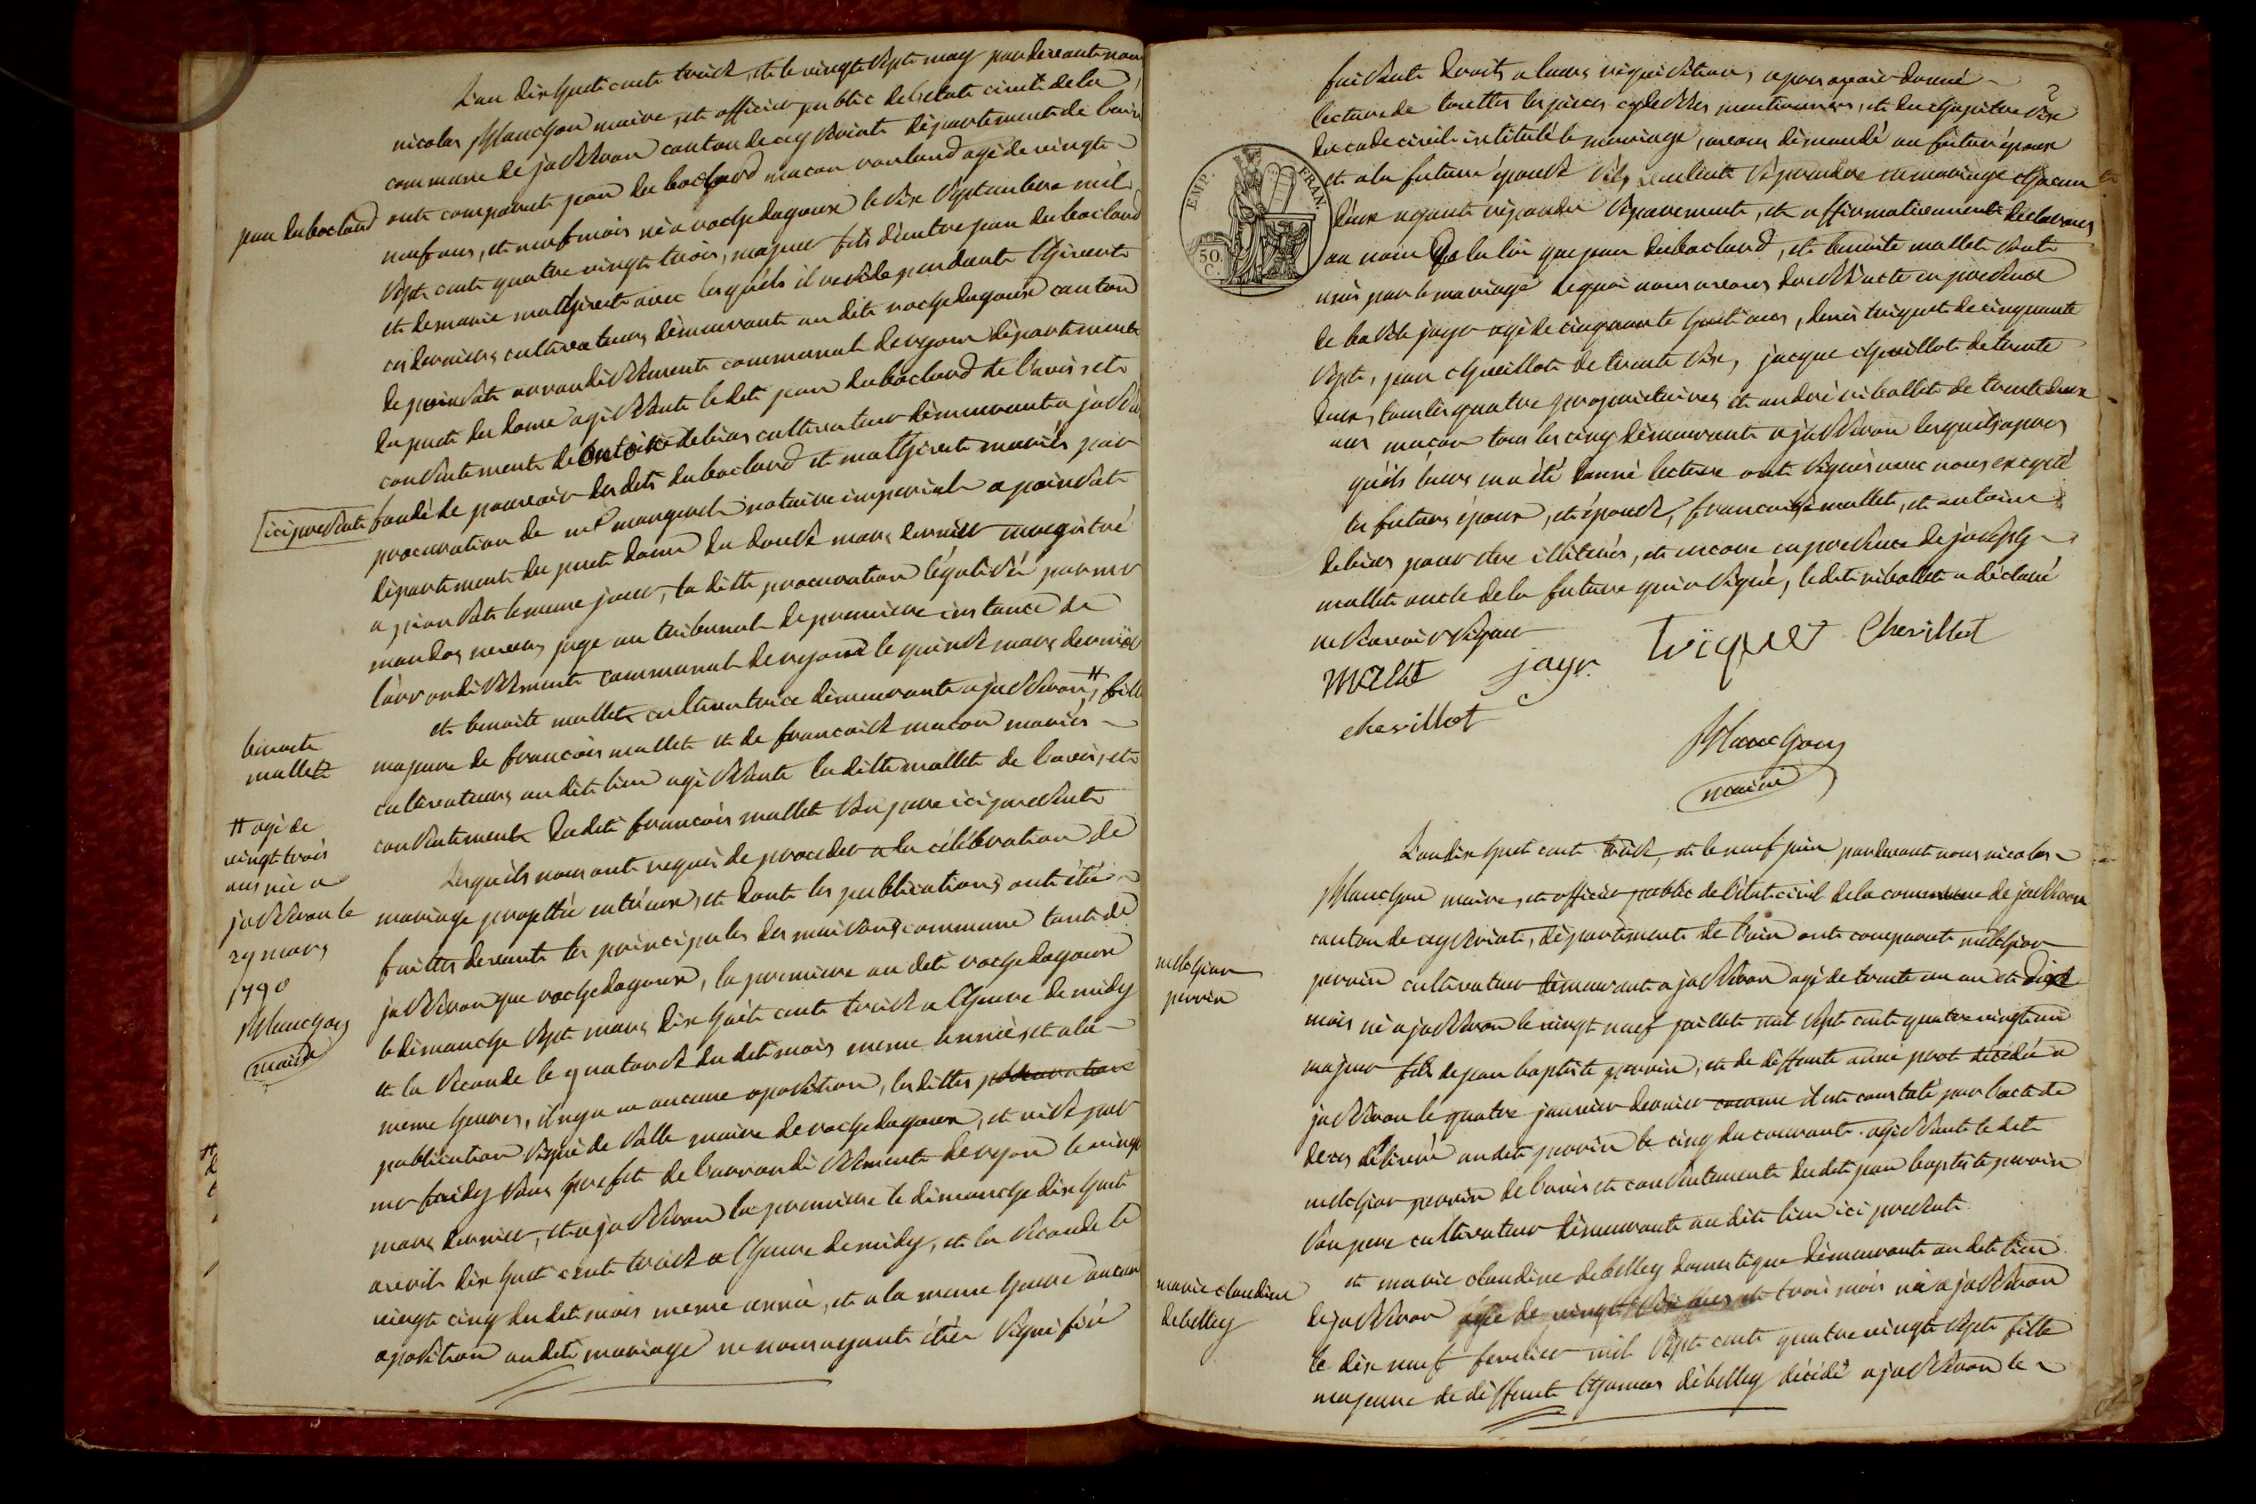 L'an dix huit cents treize, et le vingt sept may pardevant nous
nicolas Planchon maire, et officier public de letat civil de la
commune de jasseron canton de ceyzeriat departement de l'ain
jean dubocland
ont comparut jean du bocland macon rouland agé de vingt
neuf ans, et neuf mois né a roche dagoux le six septembre mil
sept cents quatre vingt trois, majeur fils d'entre jean dubocland
et de marie malthiret avec lesquels il reside pendant l'hivert
ces derniers cultivateurs demeurants au dit roche dagoux canton
de pionsat arrondissement communal de ryom département
du puit de dome agissant le dit jean dubocland de l'avis et
consentement de antoine debias cultivateur demeurant a jasseron
ici present
fondé de pouvoir des dits dubocland et malthiret mariés par
procuration de me mangerel notaire imperial a pionsat
département du puit dome du douze mars dernier enregistré
a pionsat le meme jour, la ditte procuration légalisée par mr
juge au tribunal de premiere instance de
l'arrondissement communal de ryom le quinze mars dernier
benoite
mallet
et benoite mallet cultivatrice demeurante a jasseron # fille
majeure de françois mallet et de francoise macon mariés
cultivateurs au dit lieu agissante la ditte mallet de l'avis, et
consentement dudit françois mallet son pere ici present
# agé de
vingt trois
ans née a
jasseron le
29 mars
1790
Planchon
maire
Lesquels nous ont requis de proceder a la célébration du
mariage projetté entr'eux, et dont les publications ont été
faittes devant les principales des maisons commune tant de
jasseron que roche dagoux, la premiere au dit roche dagoux
le dimanche sept mars dix huit cents treize a l'heure de midy
et la seconde le quatorze du dit mois meme année et a la
meme heure, il n'y a eu aucune oposition, les dittes procurations
publication signé de Salle maire de roche dagoux, et visé par
mr sous prefet de l'arrondissement de ryom le vingt
mars dernier, et a jasseron la premiere le dimanche dix huit
avril dix huit cents treize a l'heure de midy, et la seconde le
vingt cinq du dit mois meme année, et a la meme heure aucune
oposition au dit mariage ne nous ayant été signifiée
2
EMP. FRAN.
50 C.
faisant droits a leurs réquisition, apres avoir donné
lecture de touttes les pieces cydessus mentionnées, et du chapitre six
du code civil intitulé le mariage, avons demandé au futur époux
et a la future épouse s'ils veulent se prendre en mariage chacun
d'eux ayant répondu séparement, et affirmativement declarons
au nom de la loi que jean dubocland, et benoite mallet sont
unis par le mariage de quoi nous avons dressé acte en presence
de jayr agé de cinquante huit ans, denis triquet de cinquante
sept, jean chevillot de trente six, jacque chevillot de trente
deux, tous les quatre propriétaires et andré ribollet de trente deux
ans macon tous les cinq demeurants a jasseron lesquels apres
qu'ils leurs en a été donné lecture ont signés avec nous excepté
les futurs époux, et épouse, francoise mallet, et antoine
debias pour etre illitérés, et encore en presence de joseph
mallet oncle de la future qui a signé, ledit ribollet a déclaré
ne savoir signer
mallet jayr triquet Chevillot
chevillot
Planchon
maire
L'an dix huit cents treize, et le neuf juin pardevant nous nicolas
Planchon maire, et officier public de l'état civil de la commune de jasseron
canton de ceyzeriat, département de l'ain ont comparut melchior
melchior
perrin
perrin cultivateur demeurant a jasseron agé de trente un an et dix
mois né a jasseron le vingt neuf juillet mil sept cents quatre vingt un
majeur fils de jean baptiste perrin, et de deffunte anne prost décédée a
jasseron le quatre janvier dernier comme il est constaté par l'acte de
deces délivré au dit perrin le cinq du courant agissant le dit
melchior perrin de l'avis et consentement du dit jean baptiste perrin
son pere cultivateur demeurant au dit lieu ici present
marie claudine
debelley
et marie claudine debelley domestique demeurante au dit lieu
de jasseron agée de vingt six ans et trois mois née a jasseron
le dix neuf fevrier mil sept cents quatre vingt sept fille
majeure de deffunt thomas debelley décédé a jasseron le